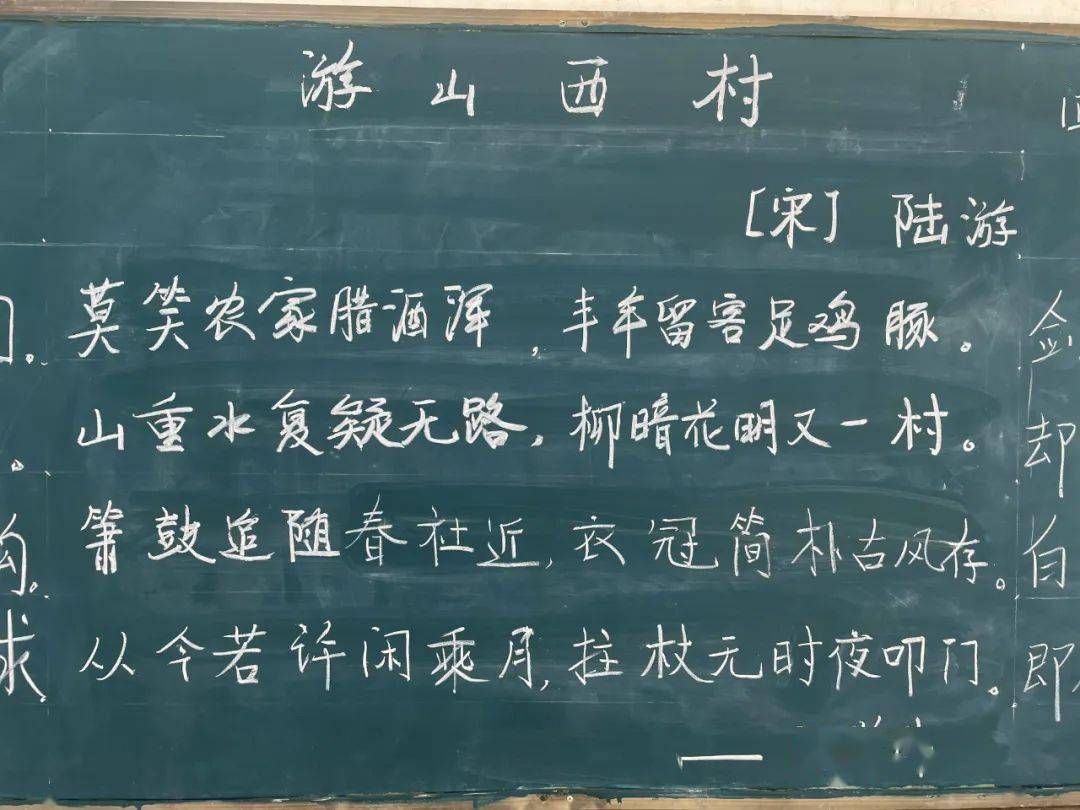 游山西村
[宋] 陆游
莫笑农家腊酒浑,丰年留客足鸡豚。
山重水复疑无路,柳暗花明又一村。
箫鼓追随春社近,衣冠简朴古风存。
从今若许闲乘月,拄杖无时夜叩门。
剑
却
自
即
求